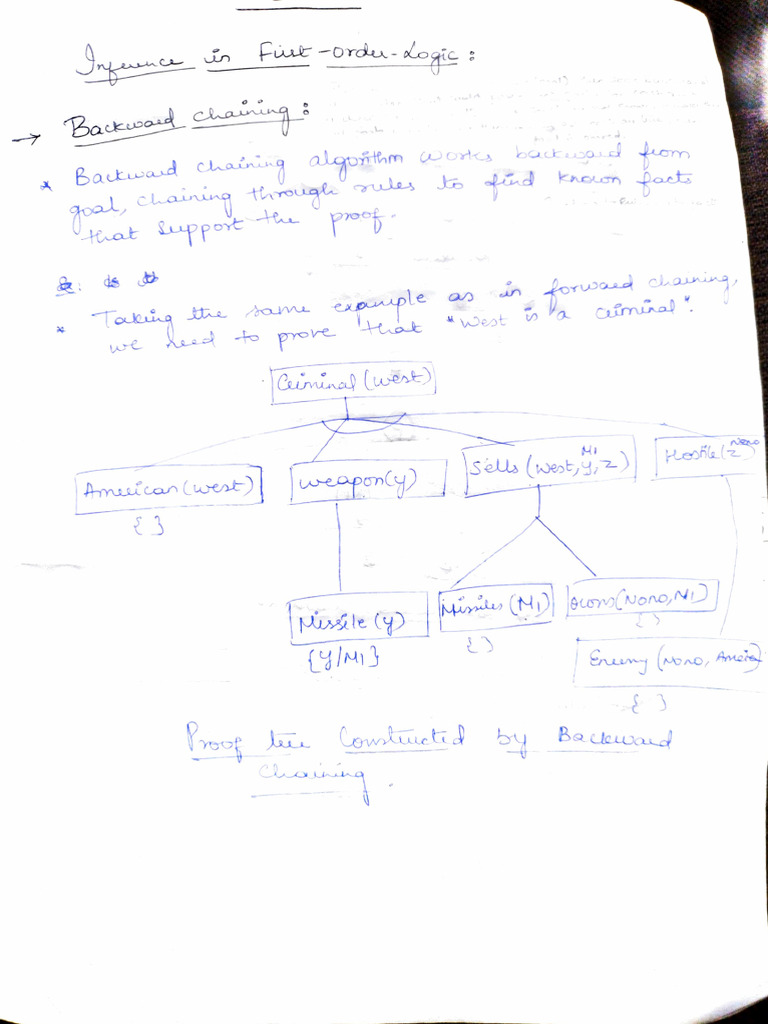 Inference in First-order-Logic :
→ Backward chaining :
* Backward chaining algorithm works backward from
goal, chaining through rules to find known facts
that support the proof.
* Taking the same example as in forward chaining,
we need to prove that "West is a criminal".
Criminal (west)
American (west)
{ }
weapon (y)
Sells (west, y, z)
M1
Hostile (z)
Nono
Missile (y)
{y/M1}
Missiles (M1)
{ }
owns (Nono, M1)
{ }
Enemy (Nono, America)
{ }
Proof tree Constructed by Backward
chaining.